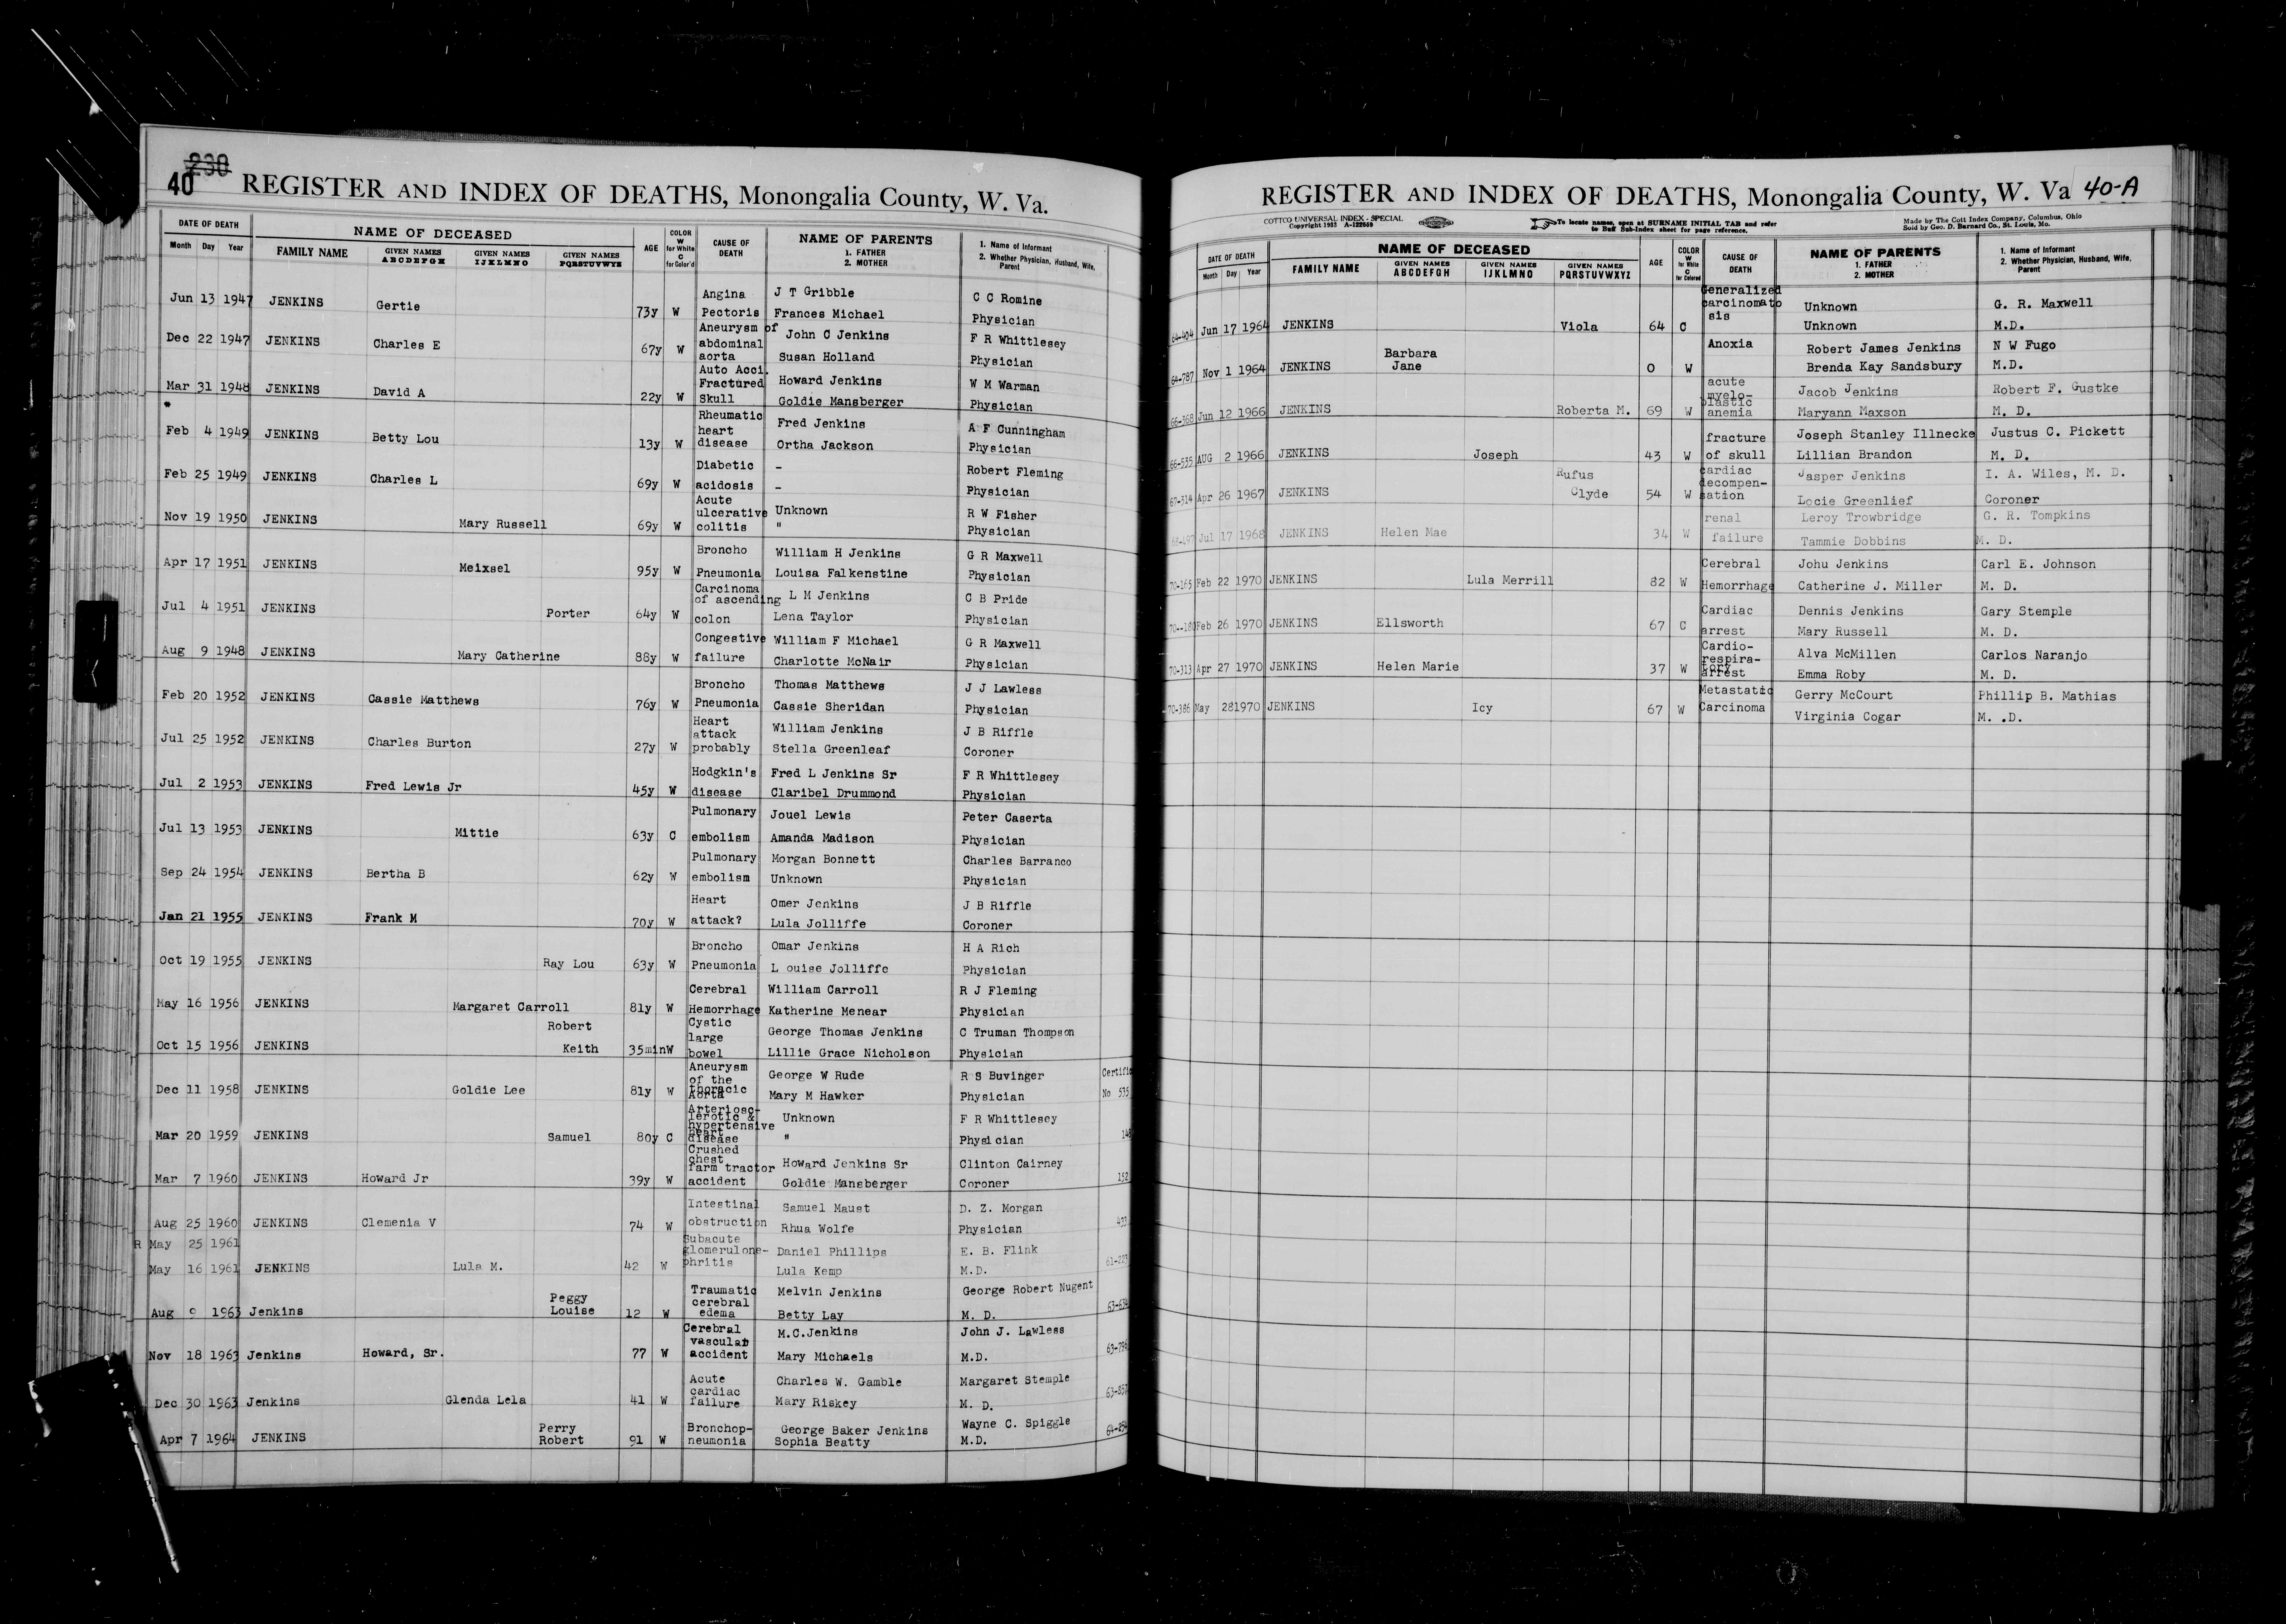 40 230
REGISTER AND INDEX OF DEATHS, Monongalia County, W. Va.
DATE OF DEATH NAME OF DECEASED AGE COLOR W for White C for Color'd CAUSE OF DEATH NAME OF PARENTS 1. FATHER 2. MOTHER 1. Name of Informant 2. Whether Physician, Husband, Wife, Parent
Month Day Year FAMILY NAME GIVEN NAMES ABCDEFGH GIVEN NAMES IJKLMNO GIVEN NAMES PQRSTUVWXYZ
Jun 13 1947 JENKINS Gertie 73y W Angina Pectoris J T Gribble Frances Michael C C Romine Physician
Dec 22 1947 JENKINS Charles E 67y W Aneurysm of abdominal aorta John C Jenkins Susan Holland F R Whittlesey Physician
Mar 31 1948 JENKINS David A 22y W Auto Acci. Fractured Skull Howard Jenkins Goldie Mansberger W M Warman Physician
*
Feb 4 1949 JENKINS Betty Lou 13y W Rheumatic heart disease Fred Jenkins Ortha Jackson A F Cunningham Physician
Feb 25 1949 JENKINS Charles L 69y W Diabetic acidosis - - Robert Fleming Physician
Nov 19 1950 JENKINS Mary Russell 69y W Acute ulcerative colitis Unknown " R W Fisher Physician
Apr 17 1951 JENKINS Meixsel 95y W Broncho Pneumonia William H Jenkins Louisa Falkenstine G R Maxwell Physician
Jul 4 1951 JENKINS Porter 64y W Carcinoma of ascending colon L M Jenkins Lena Taylor C B Pride Physician
Aug 9 1948 JENKINS Mary Catherine 88y W Congestive failure William F Michael Charlotte McNair G R Maxwell Physician
Feb 20 1952 JENKINS Cassie Matthews 76y W Broncho Pneumonia Thomas Matthews Cassie Sheridan J J Lawless Physician
Jul 25 1952 JENKINS Charles Burton 27y W Heart attack probably William Jenkins Stella Greenleaf J B Riffle Coroner
Jul 2 1953 JENKINS Fred Lewis Jr 45y W Hodgkin's disease Fred L Jenkins Sr Claribel Drummond F R Whittlesey Physician
Jul 13 1953 JENKINS Mittie 63y C Pulmonary embolism Jouel Lewis Amanda Madison Peter Caserta Physician
Sep 24 1954 JENKINS Bertha B 62y W Pulmonary embolism Morgan Bonnett Unknown Charles Barranco Physician
Jan 21 1955 JENKINS Frank M 70y W Heart attack? Omer Jenkins Lula Jolliffe J B Riffle Coroner
Oct 19 1955 JENKINS Ray Lou 63y W Broncho Pneumonia Omar Jenkins L ouise Jolliffe H A Rich Physician
May 16 1956 JENKINS Margaret Carroll 81y W Cerebral Hemorrhage William Carroll Katherine Menear R J Fleming Physician
Oct 15 1956 JENKINS Robert Keith 35min W Cystic large bowel George Thomas Jenkins Lillie Grace Nicholson C Truman Thompson Physician
Dec 11 1958 JENKINS Goldie Lee 81y W Aneurysm of the thoracic Aorta George W Rude Mary M Hawker R S Buvinger Physician Certific No 535
Mar 20 1959 JENKINS Samuel 80y C Arteriosc-lerotic & hypertensive heart disease Unknown " F R Whittlesey Physician 148
Mar 7 1960 JENKINS Howard Jr 39y W Crushed chest farm tractor accident Howard Jenkins Sr Goldie Mansberger Clinton Cairney Coroner 152
Aug 25 1960 JENKINS Clemenia V 74 W Intestinal obstruction Samuel Maust Rhua Wolfe D. Z. Morgan Physician 433
R May 25 1961
May 16 1961 JENKINS Lula M. 42 W Subacute glomerulone-phritis Daniel Phillips Lula Kemp E. B. Flink M.D. 61-223
Aug 9 1963 Jenkins Peggy Louise 12 W Traumatic cerebral edema Melvin Jenkins Betty Lay George Robert Nugent M. D. 63-634
Nov 18 1963 Jenkins Howard, Sr. 77 W Cerebral vascular accident M.C.Jenkins Mary Michaels John J. Lawless M.D.
Dec 30 1963 Jenkins Glenda Lela 41 W Acute cardiac failure Charles W. Gamble Mary Riskey Margaret Stemple M. D.
Apr 7 1964 JENKINS Perry Robert 91 W Bronchop-neumonia George Baker Jenkins Sophia Beatty Wayne C. Spiggle M.D.
REGISTER AND INDEX OF DEATHS, Monongalia County, W. Va 40-A
COTTCO UNIVERSAL INDEX - SPECIAL Copyright 1933 A-122559
To locate names, open at SURNAME INITIAL TAB and refer to Buff Sub-Index sheet for page reference.
Made by The Cott Index Company, Columbus, Ohio
Sold by Geo. D. Barnard Co., St. Louis, Mo.
DATE OF DEATH NAME OF DECEASED AGE COLOR W for White C for Colored CAUSE OF DEATH NAME OF PARENTS 1. FATHER 2. MOTHER 1. Name of Informant 2. Whether Physician, Husband, Wife, Parent
Month Day Year FAMILY NAME GIVEN NAMES ABCDEFGH GIVEN NAMES IJKLMNO GIVEN NAMES PQRSTUVWXYZ
64-404 Jun 17 1964 JENKINS Viola 64 C Generalized carcinomato sis Unknown Unknown G. R. Maxwell M.D.
64-787 Nov 1 1964 JENKINS Barbara Jane 0 W Anoxia Robert James Jenkins Brenda Kay Sandsbury N W Fugo M.D.
66-368 Jun 12 1966 JENKINS Roberta M. 69 W acute myelo-plastic anemia Jacob Jenkins Maryann Maxson Robert F. Gustke M. D.
66-535 AUG 2 1966 JENKINS Joseph 43 W fracture of skull Joseph Stanley Illnecke Lillian Brandon Justus C. Pickett M. D.
67-314 Apr 26 1967 JENKINS Rufus Clyde 54 W cardiac decompen-sation Jasper Jenkins Locie Greenlief I. A. Wiles, M. D. Coroner
68-497 Jul 17 1968 JENKINS Helen Mae 34 W renal failure Leroy Trowbridge Tammie Dobbins G. R. Tompkins M. D.
70-165 Feb 22 1970 JENKINS Lula Merrill 82 W Cerebral Hemorrhage Johu Jenkins Catherine J. Miller Carl E. Johnson M. D.
70--180 Feb 26 1970 JENKINS Ellsworth 67 C Cardiac arrest Dennis Jenkins Mary Russell Gary Stemple M. D.
70-313 Apr 27 1970 JENKINS Helen Marie 37 W Cardio-respira-tory arrest Alva McMillen Emma Roby Carlos Naranjo M. D.
70-386 May 28 1970 JENKINS Icy 67 W Metastatic Carcinoma Gerry McCourt Virginia Cogar Phillip B. Mathias M. .D.